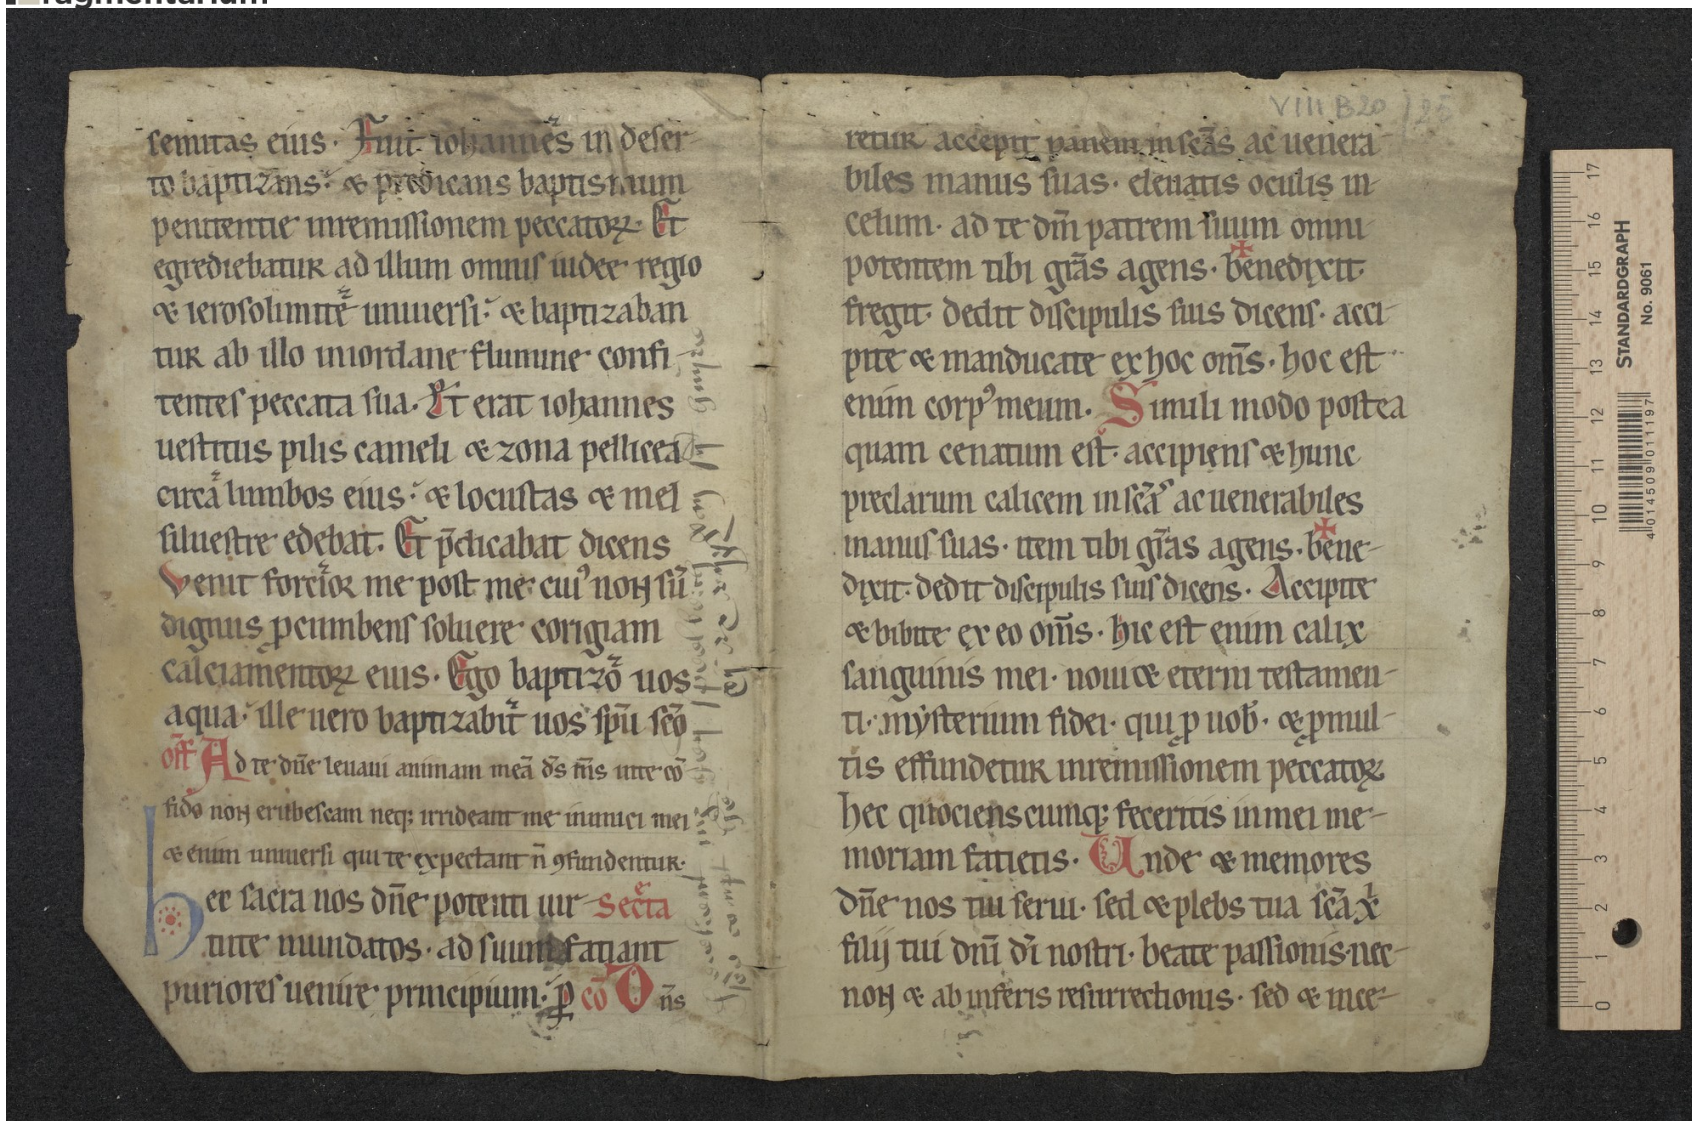 fragmentarium
semitas eius. Fuit iohannes in deser-
to baptizans. & predicans baptismum
penitentie inremissionem peccatoꝝ. Et
egrediebatur ad illum omnis iudee regio
& ierosolimite uniuersi. & baptizaban
tur ab illo iniordane flumine confi-
tentes peccata sua. Et erat iohannes
uestitus pilis cameli & zona pellicea
circa lumbos eius. & locustas & mel
siluestre edebat. Et p̄dicabat dicens
Venit forcior me post me. cuiꝰ non sū
dignus ꝓcumbens soluere corigiam
calciamentoꝝ eius. Ego baptizo uos
aqua. ille uero baptizabit uos sp̄u sc̄o
off Ad te dn̄e leuaui animam meā ds̄ ms̄ inte cō-
fido non erubescam neqꝫ irrideant me inimici mei
& enim uniuersi qui te expectant n̄ ꝯfundentur.
hec sacra nos dn̄e potenti uir- Secᵉta
tute mundatos. ad suum fatiant
puriores uenire principium. ꝑ cō Dn̄s
VIII B20
retur accepit panem in sc̄as ac uenera-
biles manus suas. eleuatis oculis in-
celum. ad te dm̄ patrem suum omni-
potentem tibi gr̄as agens. ben✠edixit
fregit. dedit discipulis suis dicens. acci-
pite & manducate ex hoc oms̄. hoc est
enim corpꝰ meum. Simili modo postea
quam cenatum est. accipiens & hunc
preclarum calicem in sc̄as ac uenerabiles
manus suas. item tibi gr̄as agens. be✠ne-
dixit. dedit discipulis suis dicens. Accipite
& bibite ex eo oms̄. hic est enim calix
sanguinis mei. noui & eterni testamen-
ti. mẏsterium fidei. qui ꝓ uob̄. & ꝓ mul-
tis effundetur inremissionem peccatoꝝ
hec quociens cumqꝫ feceritis in mei me-
moriam facietis. Unde & memores
dn̄e nos tui serui. sed & plebs tua sc̄a xͥ
filij tui dn̄i di̅ nostri. beate passionis. nec-
non & ab inferis resurrectionis. sed & ince-
STANDARDGRAPH
No. 9061
4 014509 011197
17
16
15
14
13
12
11
10
9
8
7
6
5
4
3
2
1
0